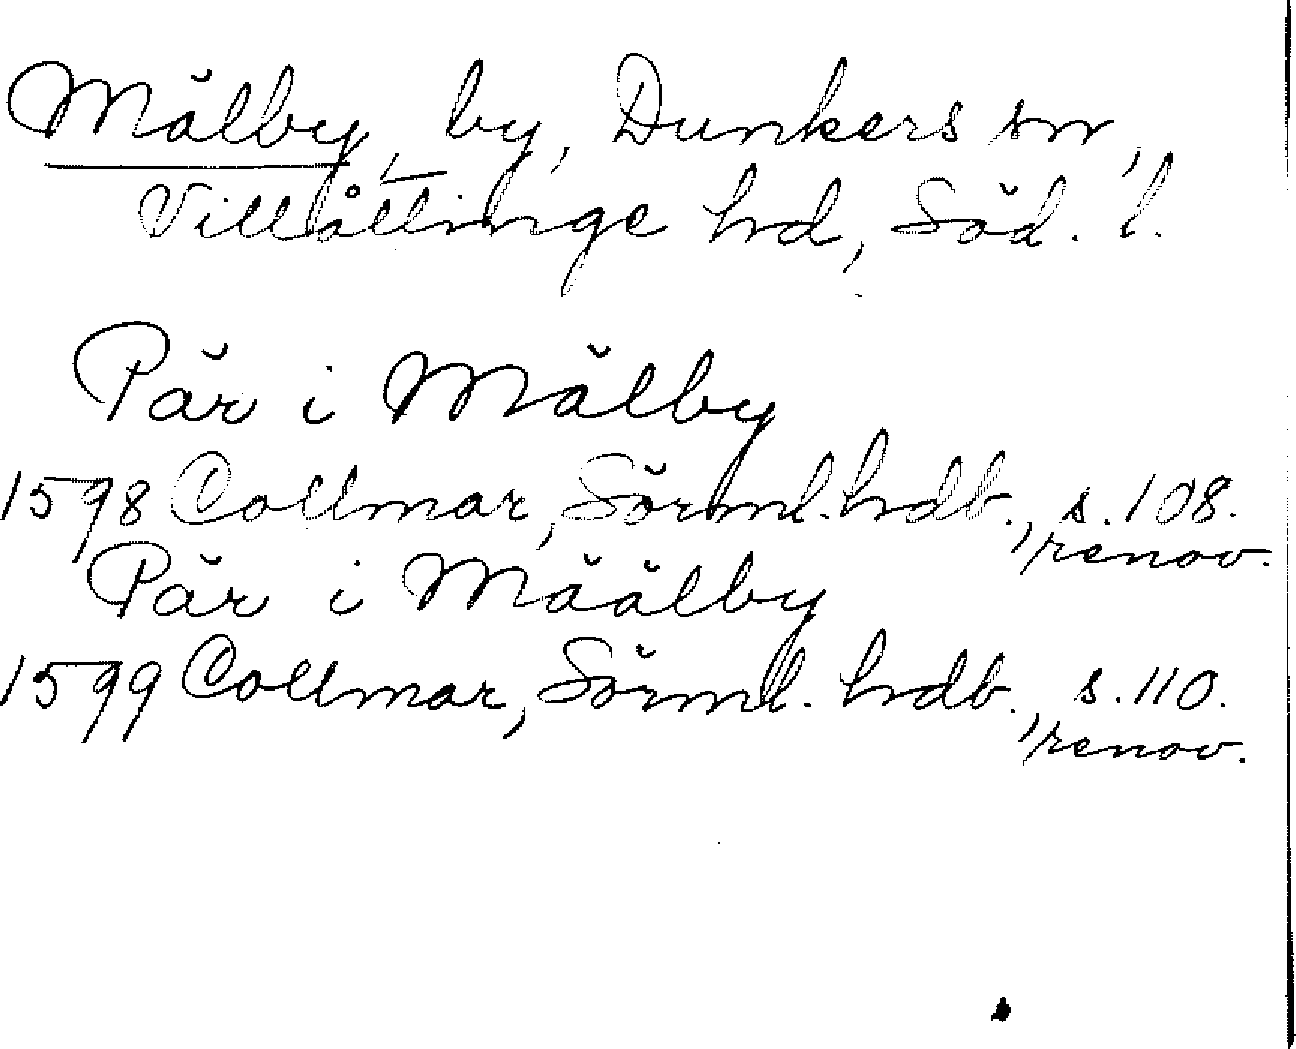 Mälby, by, Dunkers sn,
Villåttinge hd, Söd. l.
Pär i Mälby
1598 Collmar, Sörml. hdb., s. 108.
renov.
Pär i Määlby
1599 Collmar, Sörml. hdb., s. 110.
renov.